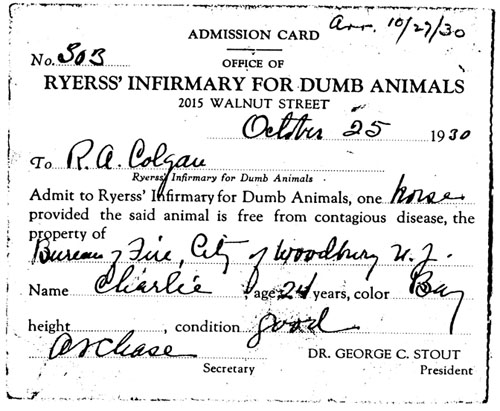 ADMISSION CARD
Arr. 10/27/30
No. 303
OFFICE OF
RYERSS' INFIRMARY FOR DUMB ANIMALS
2015 WALNUT STREET
October 25 1930
To R. A. Colgan
Ryerss' Infirmary for Dumb Animals
Admit to Ryerss' Infirmary for Dumb Animals, one horse
provided the said animal is free from contagious disease, the
property of
Bureau of Fire, City of Woodbury N. J.
Name Charlie, age 24 years, color Bay
height, condition good
Chase
DR. GEORGE C. STOUT
Secretary President